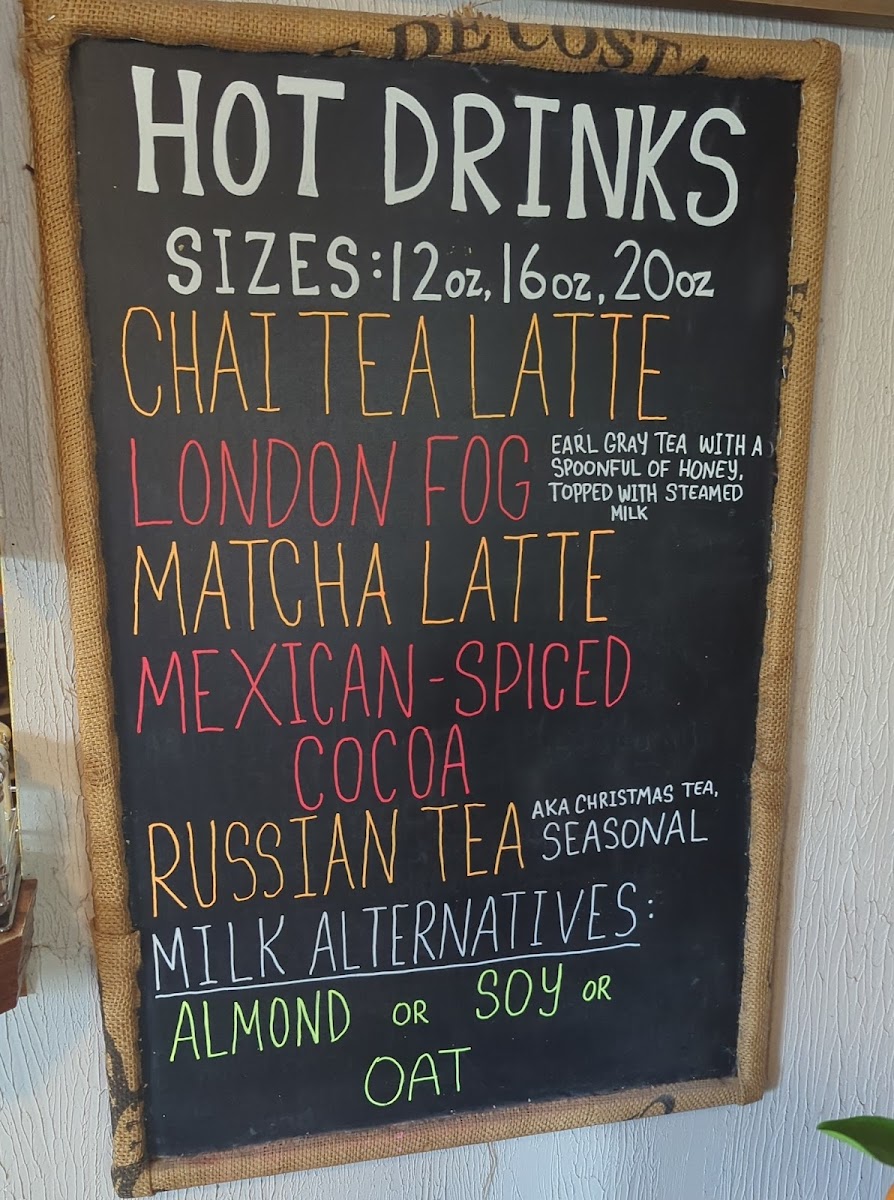 DE COSTA
HOT DRINKS
SIZES: 12oz, 16oz, 20oz
CHAI TEA LATTE
LONDON FOG
EARL GRAY TEA WITH A
SPOONFUL OF HONEY,
TOPPED WITH STEAMED
MILK
MATCHA LATTE
MEXICAN-SPICED
COCOA
RUSSIAN TEA
AKA CHRISTMAS TEA,
SEASONAL
MILK ALTERNATIVES:
ALMOND OR SOY OR
OAT